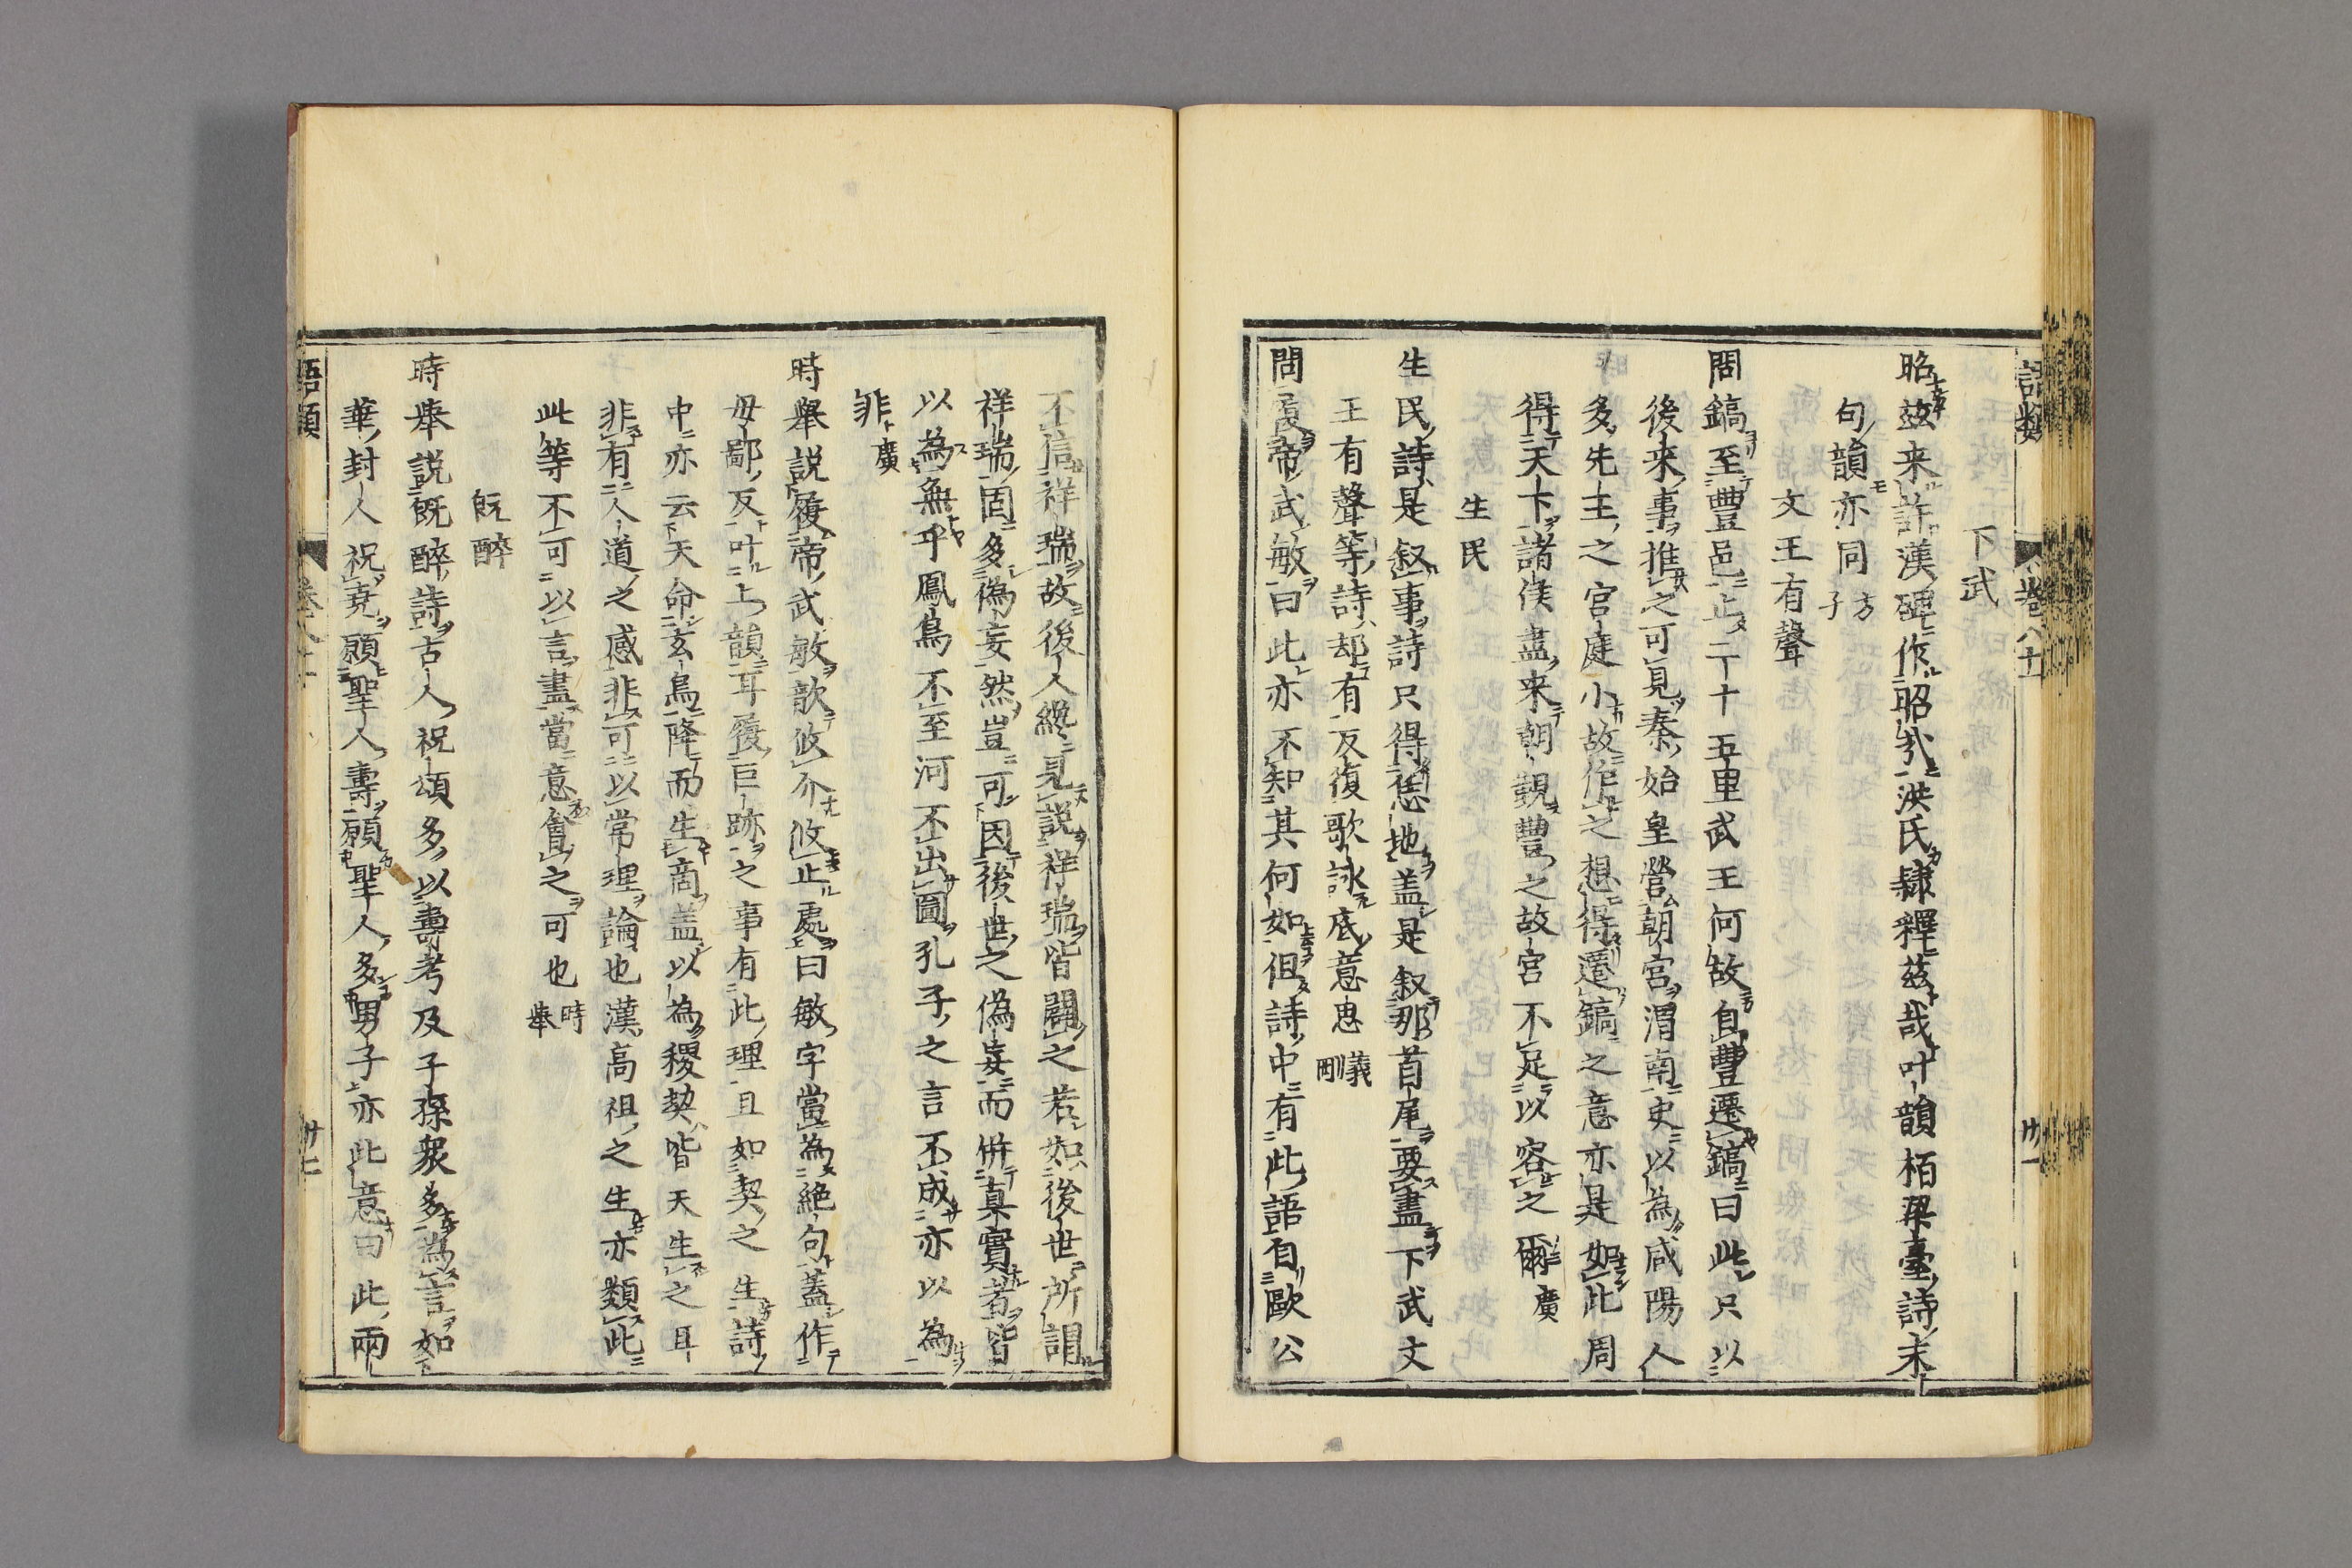 語類 卷八十一 卅一
下武
昭茲来許漢碑作昭哉洪氏隷釋茲哉叶韻栢梁臺詩末
句韻亦同 方子
文王有聲
問鎬至豐邑止二十五里武王何故自豐遷鎬曰此只以
後来事推之可見秦始皇營朝宮渭南史以為咸陽人
多先王之宮庭小故作之想得遷鎬之意亦是如此周
得天下諸侯盡来朝覲豐之故宮不足以容之爾 廣
生民
生民詩是叙事詩只得恁地盖是叙那首尾要盡下武文
王有聲等詩却有反復歌詠底意思 義剛
問履帝武敏曰此亦不知其何如但詩中有此語自歐公
不信祥瑞故後人纔見說祥瑞皆闢之若如後世所謂
祥瑞固多偽妄然豈可因後世之偽妄而併真實者皆
以為無乎鳳鳥不至河不出圖孔子之言不成亦以為
非 廣
時舉說履帝武敏歆攸介攸止處曰敏字當為絶句蓋作
母鄙反叶上韻耳履巨跡之事有此理且如契之生詩
中亦云天命玄鳥降而生商盖以為稷契皆天生之耳
非有人道之感非可以常理論也漢高祖之生亦類此
此等不可以言盡當意會之可也 時舉
旣醉
時舉說旣醉詩古人祝頌多以壽考及子孫衆多為言如
華封人祝堯願聖人壽願聖人多男子亦此意曰此兩
語類 卷八十一 卅二